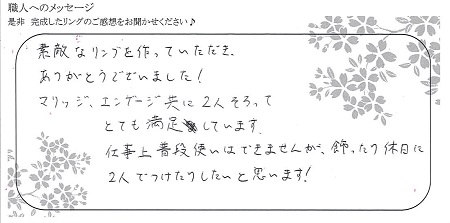 職人へのメッセージ
是非 完成したリングのご感想をお聞かせください♪
素敵なリングを作っていただき、
ありがとうございました!
マリッジ、エンゲージ共に2人そろって
とても満足しています。
仕事上普段使いはできませんが、飾ったり休日に
2人でつけたりしたいと思います!